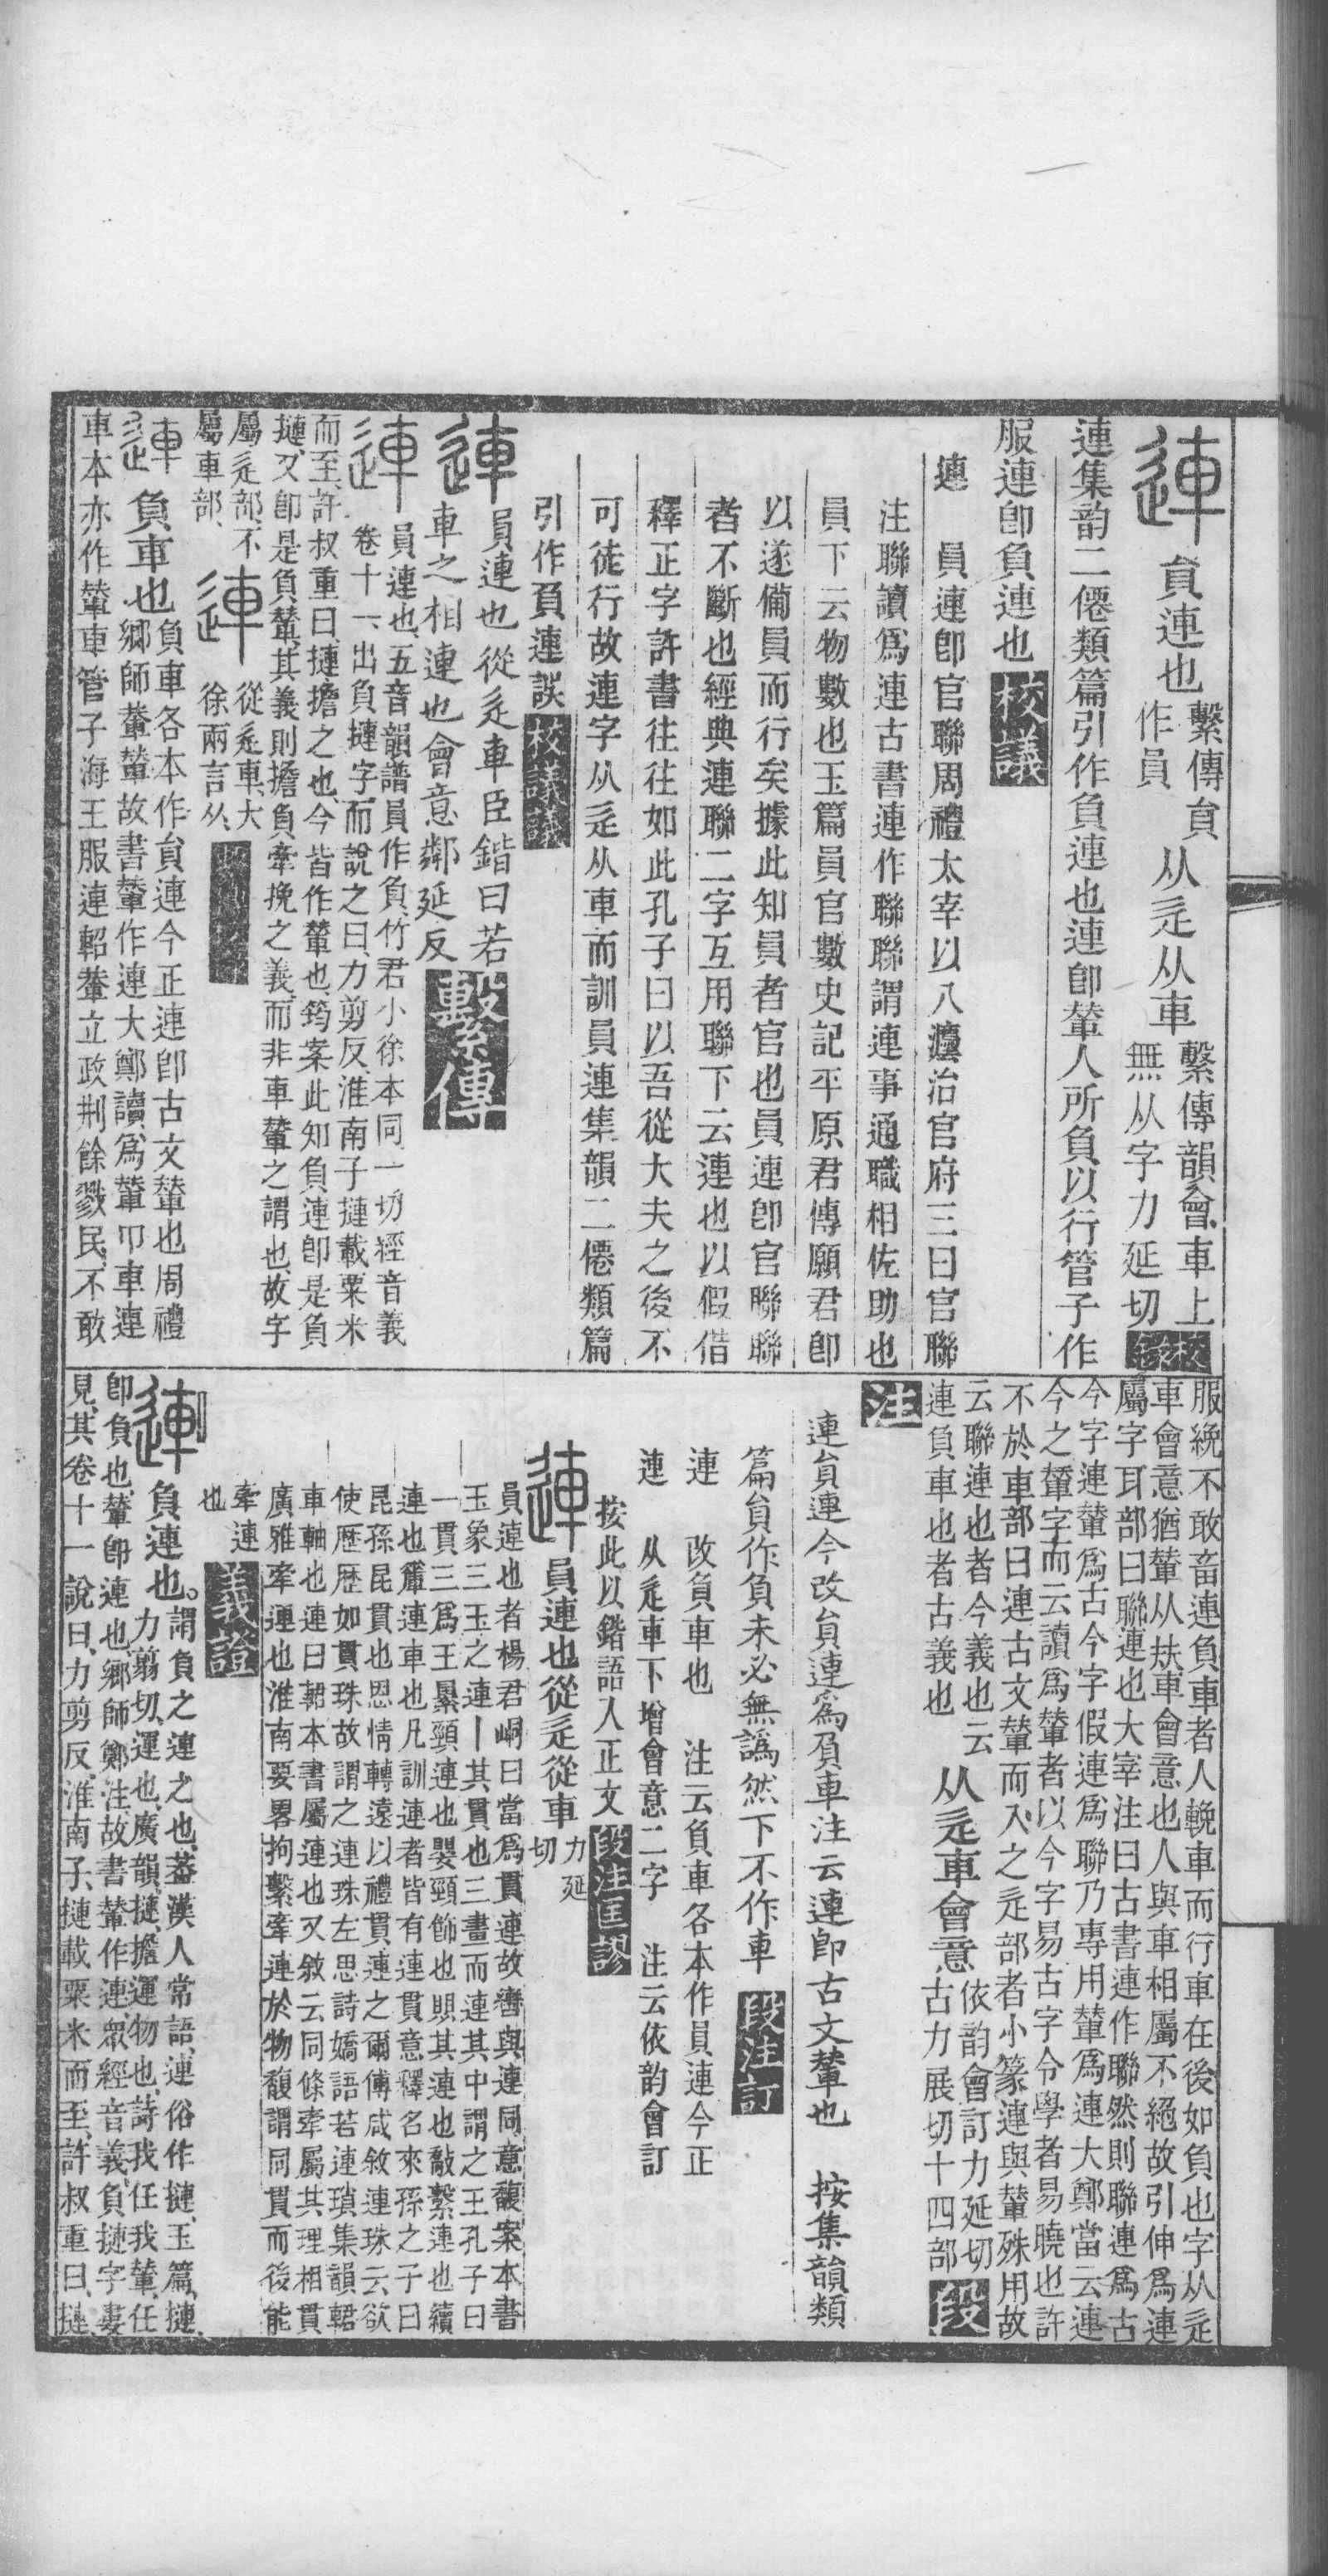 連 貟連也
繫傳貟
作員
从辵从車
繫傳韻會車上
無从字力延切
校錄
連集韵二僊類篇引作負連也連卽輦人所負以行管子作
服連卽負連也 校議
連 員連卽官聯周禮太宰以八灋治官府三曰官聯
注聯讀爲連古書連作聯聯謂連事通職相佐助也
員下云物數也玉篇員官數史記平原君傳願君卽
以遂備員而行矣據此知員者官也員連卽官聯聯
者不斷也經典連聯二字互用聯下云連也以假借
釋正字許書往往如此孔子曰以吾從大夫之後不
可徒行故連字从辵从車而訓員連集韻二僊類篇
引作負連誤 校議議
連 員連也從辵車臣鍇曰若
車之相連也會意鄰延反 繫傳
連 員連也五音韻譜員作負竹君小徐本同一切經音義
卷十一出負摙字而說之曰力剪反淮南子摙載粟米
而至許叔重曰摙擔之也今皆作輦也筠案此知負連卽是負
摙又卽是負輦其義則擔負牽挽之義而非車輦之謂也故字
屬辵部不
屬車部
連 從辵車大
徐兩言从
連 負車也
負車各本作貟連今正連卽古文輦也周禮
鄉師輂輦故書輦作連大鄭讀爲輦巾車連
車本亦作輦車管子海王服連軺輂立政刑餘戮民不敢
服絻不敢畜連負車者人輓車而行車在後如負也字从辵
車會意猶輦从㚘車會意也人與車相屬不絕故引伸爲連
屬字耳部曰聯連也大宰注曰古書連作聯然則聯連爲古
今字連輦爲古今字假連爲聯乃專用輦爲連大鄭當云連
今之輦字而云讀爲輦者以今字易古字令學者易曉也許
不於車部曰連古文輦而入之辵部者小篆連與輦殊用故
云聯連也者今義也云
連負車也者古義也
从辵車會意
依韵會訂力延切
古力展切十四部
段
注
連貟連今改貟連爲負車注云連卽古文輦也 按集韻類
篇貟作負未必無譌然下不作車 段注訂
連 改負車也 注云負車各本作員連今正
連 从辵車下增會意二字 注云依韵會訂
按此以鍇語入正文 段注匡謬
連 員連也從辵從車 力延
切
員連也者楊君峒曰當爲貫連故轡與連同意馥案本書
玉象三玉之連丨其貫也三畫而連其中謂之王孔子曰
一貫三爲王纍頸連也嬰頸飾也賏其連也㪏繫連也續
連也䉛連車也凡訓連者皆有連貫意釋名來孫之子曰
昆孫昆貫也恩情轉遠以禮貫連之爾傅咸敘連珠云欲
使歷歷如貫珠故謂之連珠左思詩嬌語若連瑣集韻䡓
車軸也連曰䡓本書屬連也又敘云同條牽屬其理相貫
廣雅牽連也淮南要畧拘繫牽連於物馥謂同貫而後能
牽連
也
義證
連 負連也。
謂負之連之也蓋漢人常語連俗作摙玉篇摙
力翦切運也廣韻摙擔運物也詩我任我輦任
卽負也輦卽連也鄉師鄭注故書輦作連眾經音義負摙字婁
見其卷十一說曰力剪反淮南子摙載粟米而至許叔重曰摙